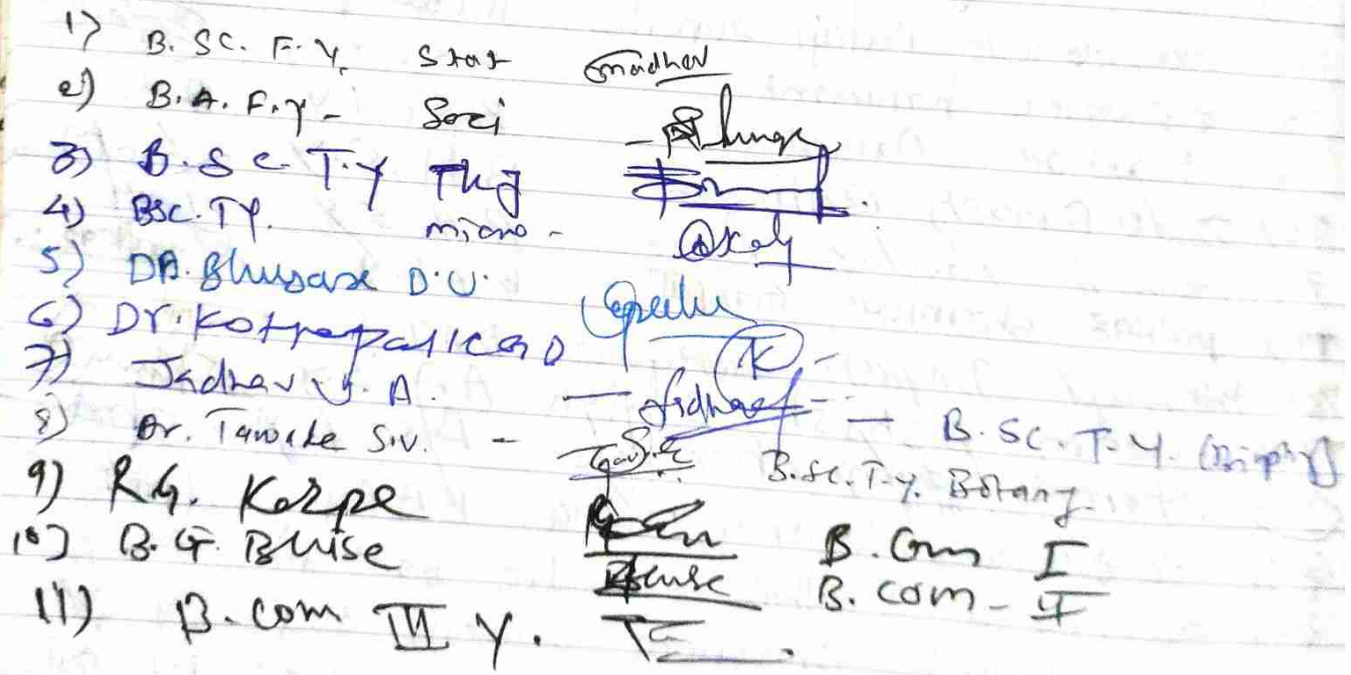 1) B.SC. F.Y. Stat
2) B.A. F.Y- Soci
3) B.Sc. T.Y Phy
4) BSc. TY. micro-
5) DR. Bhusare D.U.
6) Dr. Kottapalle G D K
7) Jadhav Y. A. - Jadhav - B.SC.T.Y.
8) Dr. Tawade S.V. - B.Sc.T.Y. Botany
9) R.G. Korpe B.Com I
10) B.G. Bhise Bhise B.com- II
11) B.com III Y.